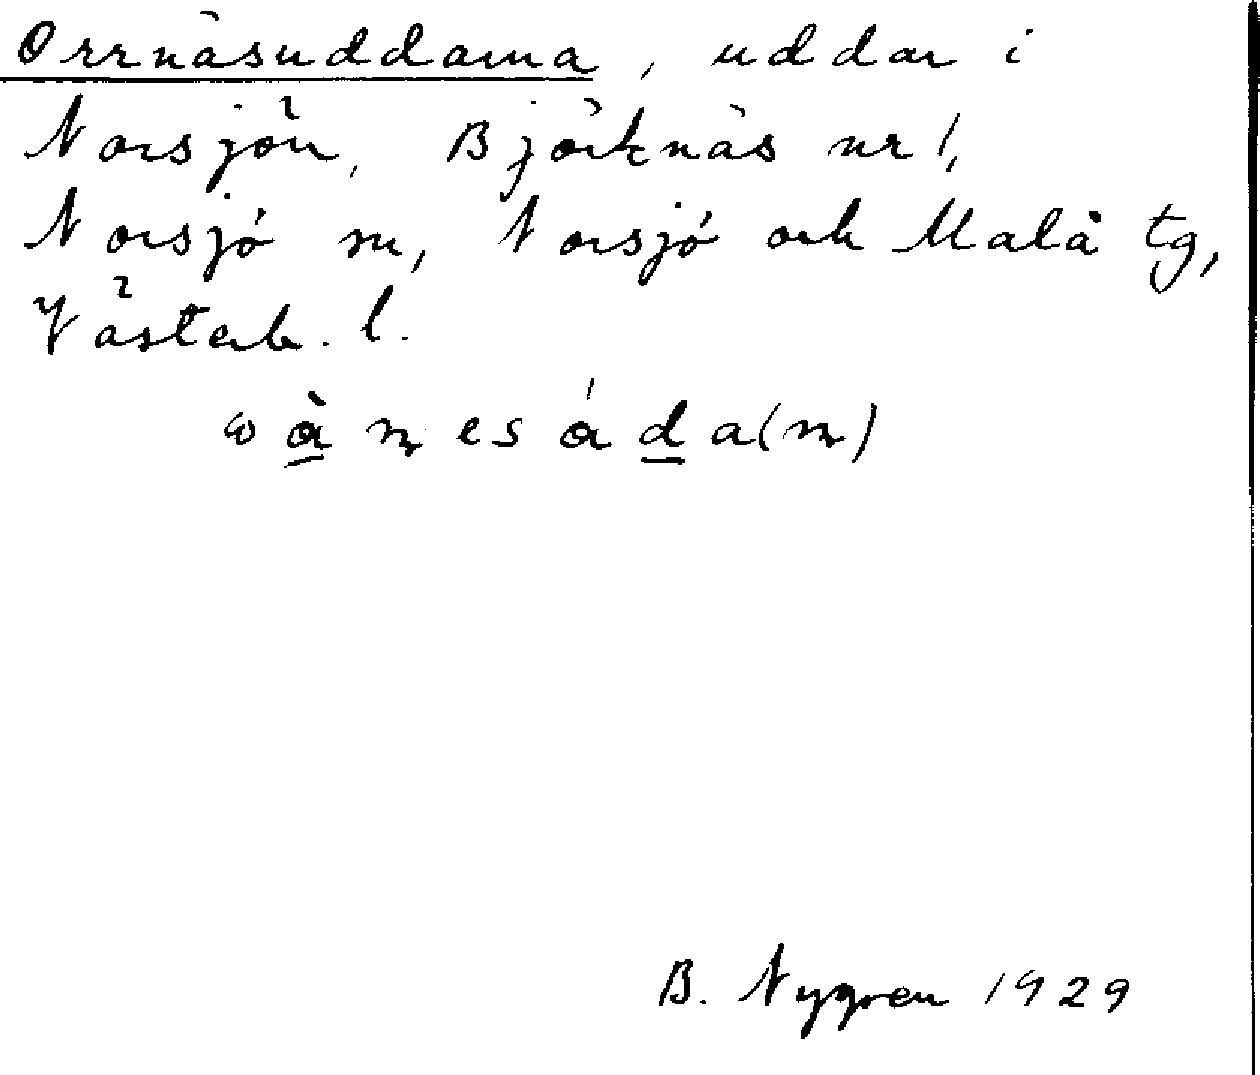 Orrnäsuddarna, uddar i
Norsjön, Björknäs nr 1,
Norsjö sn, Norsjö och Malå tg,
Västerb. l.
B. Nygren 1929